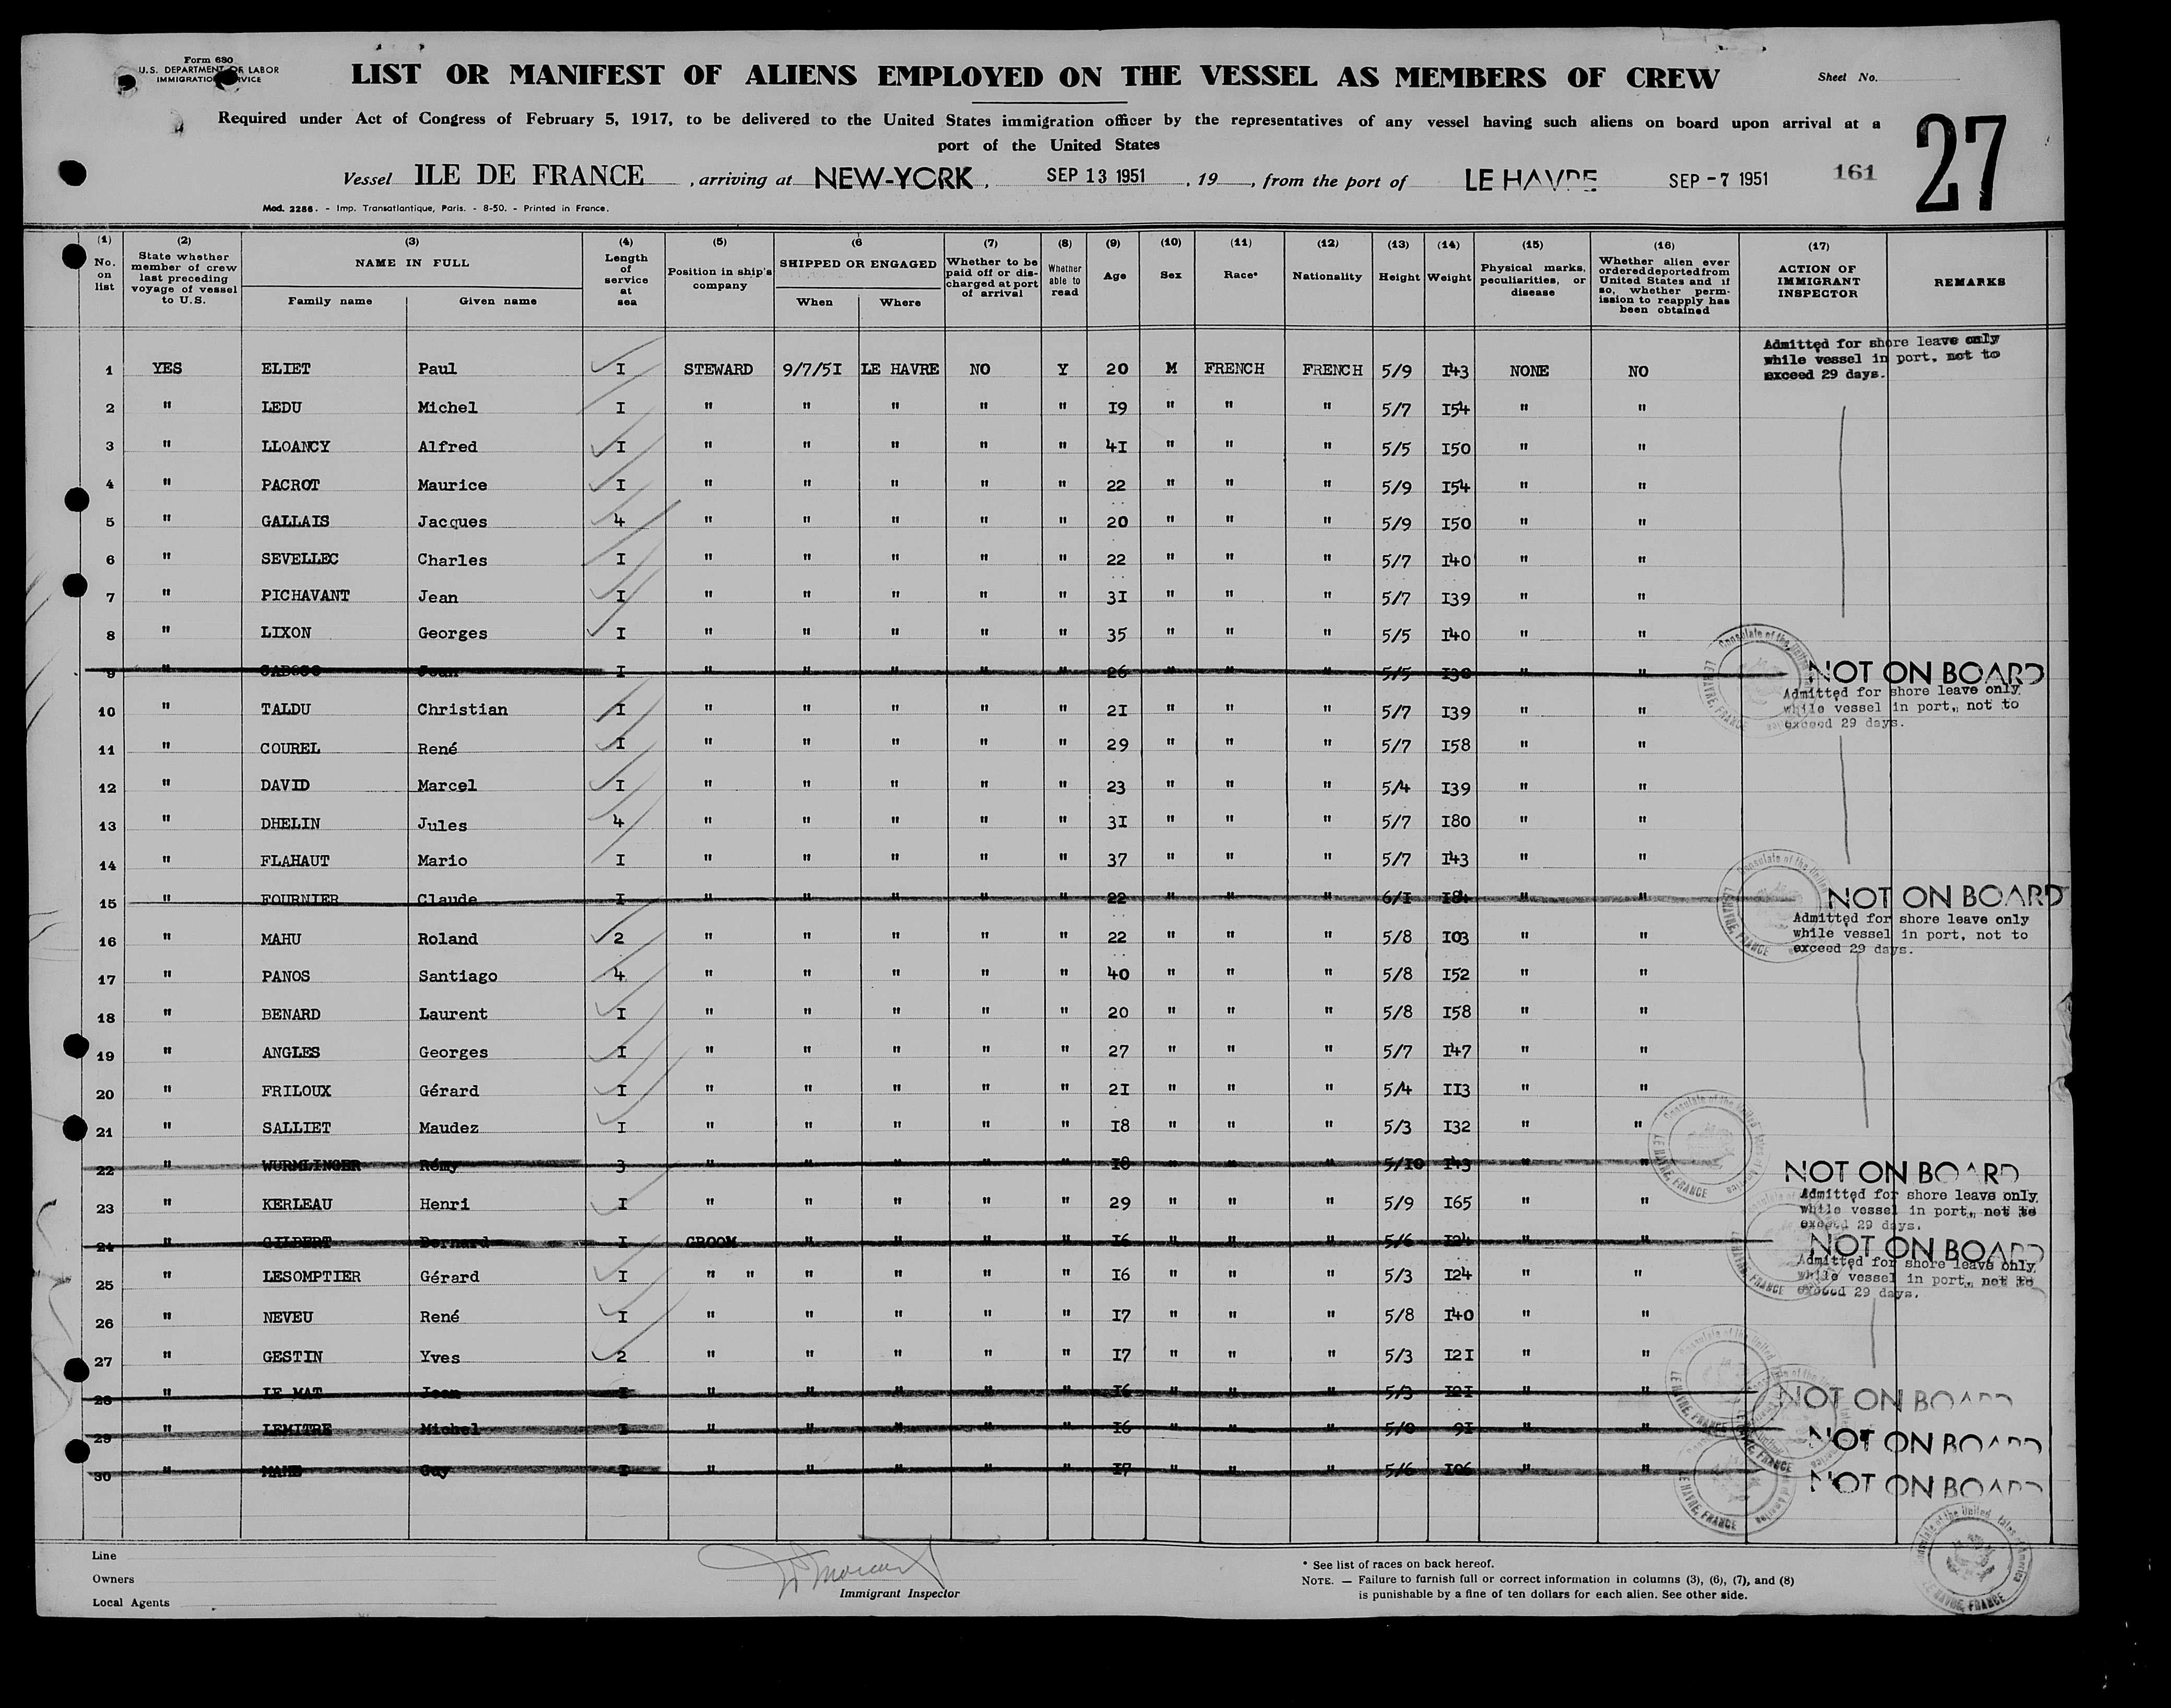 Form 680
U.S. DEPARTMENT OF LABOR
IMMIGRATION SERVICE
LIST OR MANIFEST OF ALIENS EMPLOYED ON THE VESSEL AS MEMBERS OF CREW
Sheet No.
Required under Act of Congress of February 5, 1917, to be delivered to the United States immigration officer by the representatives of any vessel having such aliens on board upon arrival at a
port of the United States
27
Vessel ILE DE FRANCE, arriving at NEW-YORK, SEP 13 1951, 19, from the port of LE HAVRE SEP -7 1951 161
Mod. 2286. - Imp. Transatlantique, Paris. - 8-50. - Printed in France.
(1) No. on list (2) State whether member of crew last preceding voyage of vessel to U.S. (3) NAME IN FULL Family name Given name (4) Length of service at sea (5) Position in ship's company (6 SHIPPED OR ENGAGED When Where (7) Whether to be paid off or discharged at port of arrival (8) Whether able to read (9) Age (10) Sex (11) Race* (12) Nationality (13) Height (14) Weight (15) Physical marks, peculiarities, or disease (16) Whether alien ever ordered deported from United States and if so, whether permission to reapply has been obtained (17) ACTION OF IMMIGRANT INSPECTOR REMARKS
1 YES ELIET Paul I STEWARD 9/7/5I LE HAVRE NO Y 20 M FRENCH FRENCH 5/9 I43 NONE NO Admitted for shore leave only while vessel in port, not to exceed 29 days.
2 " LEDU Michel I " " " " " I9 " " " 5/7 I54 " "
3 " LLOANCY Alfred I " " " " " 4I " " " 5/5 I50 " "
4 " PACROT Maurice I " " " " " 22 " " " 5/9 I54 " "
5 " GALLAIS Jacques 4 " " " " " 20 " " " 5/9 I50 " "
6 " SEVELLEC Charles I " " " " " 22 " " " 5/7 I40 " "
7 " PICHAVANT Jean I " " " " " 3I " " " 5/7 I39 " "
8 " LIXON Georges I " " " " " 35 " " " 5/5 I40 " "
9 " I " " " " " 26 " " " 5/5 " " NOT ON BOARD
10 " TALDU Christian I " " " " " 2I " " " 5/7 I39 " " Admitted for shore leave only while vessel in port, not to exceed 29 days.
11 " COUREL René I " " " " " 29 " " " 5/7 I58 " "
12 " DAVID Marcel I " " " " " 23 " " " 5/4 I39 " "
13 " DHELIN Jules 4 " " " " " 3I " " " 5/7 I80 " "
14 " FLAHAUT Mario I " " " " " 37 " " " 5/7 I43 " "
15 " FOURNIER Claude I " " " " " 22 " " " 6/I I84 " " NOT ON BOARD
16 " MAHU Roland 2 " " " " " 22 " " " 5/8 I03 " " Admitted for shore leave only while vessel in port, not to exceed 29 days.
17 " PANOS Santiago 4 " " " " " 40 " " " 5/8 I52 " "
18 " BENARD Laurent I " " " " " 20 " " " 5/8 I58 " "
19 " ANGLES Georges I " " " " " 27 " " " 5/7 I47 " "
20 " FRILOUX Gérard I " " " " " 2I " " " 5/4 II3 " "
21 " SALLIET Maudez I " " " " " I8 " " " 5/3 I32 " "
22 " WURMLINGER Rémy 3 " " " " " I8 " " " 5/I0 I43 " " NOT ON BOARD
23 " KERLEAU Henri I " " " " " 29 " " " 5/9 I65 " " Admitted for shore leave only while vessel in port, not to exceed 29 days.
24 " GILBERT Bernard I GROOM " " " " I6 " " " 5/6 I24 " " NOT ON BOARD
25 " LESOMPTIER Gérard I " " " " " " I6 " " " 5/3 I24 " " Admitted for shore leave only while vessel in port, not to exceed 29 days.
26 " NEVEU René I " " " " " I7 " " " 5/8 I40 " "
27 " GESTIN Yves 2 " " " " " I7 " " " 5/3 I2I " "
28 " LE MAT Jean I " " " " " I6 " " " 5/3 I2I " " NOT ON BOARD
29 " LEMITRE Michel I " " " " " I6 " " " 5/0 9I " " NOT ON BOARD
30 " Guy I " " " " " I7 " " " 5/6 I06 " " NOT ON BOARD
Consulate of the United States of America LE HAVRE, FRANCE
Line
Owners
Local Agents
Immigrant Inspector
* See list of races on back hereof.
NOTE. — Failure to furnish full or correct information in columns (3), (6), (7), and (8)
is punishable by a fine of ten dollars for each alien. See other side.